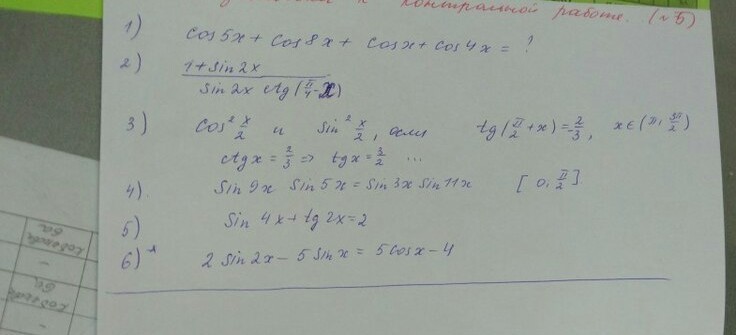 к контрольной работе. (№5)
1) cos5x + cos8x + cosx + cos4x = ?
2) 1+sin2x
sin2x ctg(π/4-x)
3) cos² x/2 и sin² x/2, если tg(π/2+x)=-2/3, x∈(π, 3π/2)
ctgx = 2/3 => tgx = 3/2 ...
4). sin9x sin5x = sin3x sin11x [0, π/2]
5) sin4x + tg2x = 2
6)* 2sin2x - 5sinx = 5cosx - 4